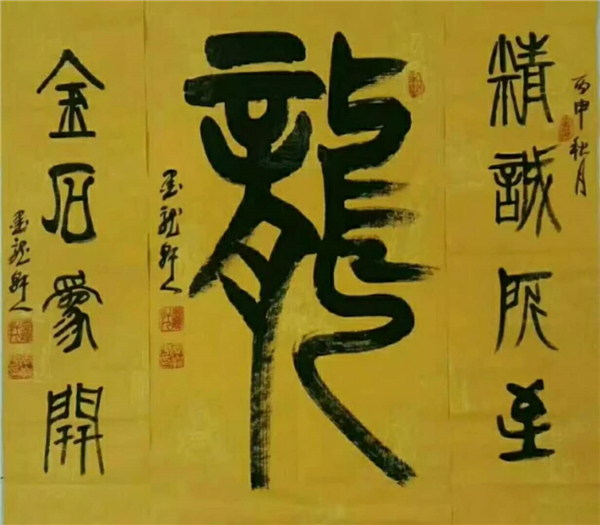 丙申秋月
精誠所至
龍
墨龍軒人
金石爲開
墨龍軒人